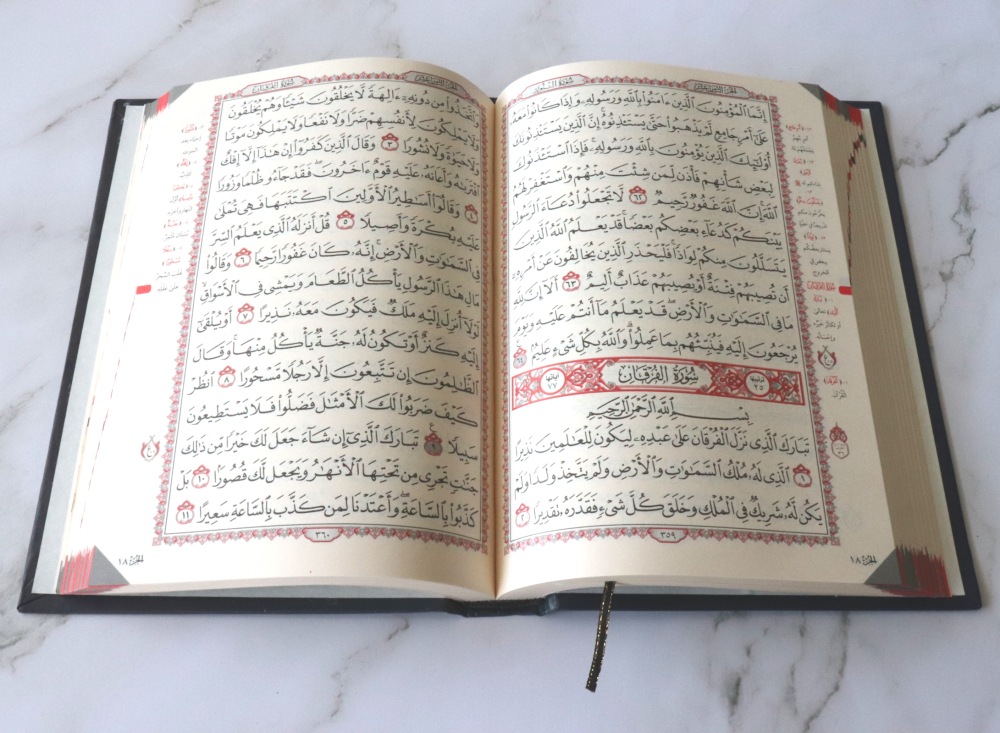 سورة النور
الجزء الثامن عشر
إِنَّمَا ٱلْمُؤْمِنُونَ ٱلَّذِينَ ءَامَنُوا۟ بِٱللَّهِ وَرَسُولِهِۦ وَإِذَا كَانُوا۟ مَعَهُۥ
عَلَىٰٓ أَمْرٍ جَامِعٍ لَّمْ يَذْهَبُوا۟ حَتَّىٰ يَسْتَـْٔذِنُوهُ إِنَّ ٱلَّذِينَ يَسْتَـْٔذِنُونَكَ
أُو۟لَٰٓئِكَ ٱلَّذِينَ يُؤْمِنُونَ بِٱللَّهِ وَرَسُولِهِۦ فَإِذَا ٱسْتَـْٔذَنُوكَ
لِبَعْضِ شَأْنِهِمْ فَأْذَن لِّمَن شِئْتَ مِنْهُمْ وَٱسْتَغْفِرْ لَهُمُ
ٱللَّهَ إِنَّ ٱللَّهَ غَفُورٌ رَّحِيمٌ ٦٢ لَّا تَجْعَلُوا۟ دُعَآءَ ٱلرَّسُولِ
بَيْنَكُمْ كَدُعَآءِ بَعْضِكُم بَعْضًا قَدْ يَعْلَمُ ٱللَّهُ ٱلَّذِينَ
يَتَسَلَّلُونَ مِنكُمْ لِوَاذًا فَلْيَحْذَرِ ٱلَّذِينَ يُخَالِفُونَ عَنْ أَمْرِهِۦٓ
أَن تُصِيبَهُمْ فِتْنَةٌ أَوْ يُصِيبَهُمْ عَذَابٌ أَلِيمٌ ٦٣ أَلَآ إِنَّ لِلَّهِ
مَا فِى ٱلسَّمَٰوَٰتِ وَٱلْأَرْضِ قَدْ يَعْلَمُ مَآ أَنتُمْ عَلَيْهِ وَيَوْمَ
يُرْجَعُونَ إِلَيْهِ فَيُنَبِّئُهُم بِمَا عَمِلُوا۟ وَٱللَّهُ بِكُلِّ شَىْءٍ عَلِيمٌۢ ٦٤
ترتيبها ٢٥ سُورَةُ الفُرْقَانِ آياتها ٧٧
بِسْمِ ٱللَّهِ ٱلرَّحْمَٰنِ ٱلرَّحِيمِ
تَبَارَكَ ٱلَّذِى نَزَّلَ ٱلْفُرْقَانَ عَلَىٰ عَبْدِهِۦ لِيَكُونَ لِلْعَٰلَمِينَ نَذِيرًا
١ ٱلَّذِى لَهُۥ مُلْكُ ٱلسَّمَٰوَٰتِ وَٱلْأَرْضِ وَلَمْ يَتَّخِذْ وَلَدًا وَلَمْ
يَكُن لَّهُۥ شَرِيكٌ فِى ٱلْمُلْكِ وَخَلَقَ كُلَّ شَىْءٍ فَقَدَّرَهُۥ تَقْدِيرًا ٢
٣٥٩
الجزء ١٨
سورة الفرقان
الجزء الثامن عشر
وَٱتَّخَذُوا۟ مِن دُونِهِۦٓ ءَالِهَةً لَّا يَخْلُقُونَ شَيْـًٔا وَهُمْ يُخْلَقُونَ
وَلَا يَمْلِكُونَ لِأَنفُسِهِمْ ضَرًّا وَلَا نَفْعًا وَلَا يَمْلِكُونَ مَوْتًا
وَلَا حَيَوٰةً وَلَا نُشُورًا ٣ وَقَالَ ٱلَّذِينَ كَفَرُوٓا۟ إِنْ هَٰذَآ إِلَّآ إِفْكٌ
ٱفْتَرَىٰهُ وَأَعَانَهُۥ عَلَيْهِ قَوْمٌ ءَاخَرُونَ فَقَدْ جَآءُو ظُلْمًا وَزُورًا
٤ وَقَالُوٓا۟ أَسَٰطِيرُ ٱلْأَوَّلِينَ ٱكْتَتَبَهَا فَهِىَ تُمْلَىٰ
عَلَيْهِ بُكْرَةً وَأَصِيلًا ٥ قُلْ أَنزَلَهُ ٱلَّذِى يَعْلَمُ ٱلسِّرَّ
فِى ٱلسَّمَٰوَٰتِ وَٱلْأَرْضِ إِنَّهُۥ كَانَ غَفُورًا رَّحِيمًا ٦ وَقَالُوا۟
مَالِ هَٰذَا ٱلرَّسُولِ يَأْكُلُ ٱلطَّعَامَ وَيَمْشِى فِى ٱلْأَسْوَاقِ
لَوْلَآ أُنزِلَ إِلَيْهِ مَلَكٌ فَيَكُونَ مَعَهُۥ نَذِيرًا ٧ أَوْ يُلْقَىٰٓ
إِلَيْهِ كَنزٌ أَوْ تَكُونُ لَهُۥ جَنَّةٌ يَأْكُلُ مِنْهَا وَقَالَ
ٱلظَّٰلِمُونَ إِن تَتَّبِعُونَ إِلَّا رَجُلًا مَّسْحُورًا ٨ ٱنظُرْ
كَيْفَ ضَرَبُوا۟ لَكَ ٱلْأَمْثَٰلَ فَضَلُّوا۟ فَلَا يَسْتَطِيعُونَ
سَبِيلًا ٩ تَبَارَكَ ٱلَّذِىٓ إِن شَآءَ جَعَلَ لَكَ خَيْرًا مِّن ذَٰلِكَ
جَنَّٰتٍ تَجْرِى مِن تَحْتِهَا ٱلْأَنْهَٰرُ وَيَجْعَل لَّكَ قُصُورًۢا ١٠ بَلْ
كَذَّبُوا۟ بِٱلسَّاعَةِ وَأَعْتَدْنَا لِمَن كَذَّبَ بِٱلسَّاعَةِ سَعِيرًا ١١
٣٦٠
الجزء ١٨